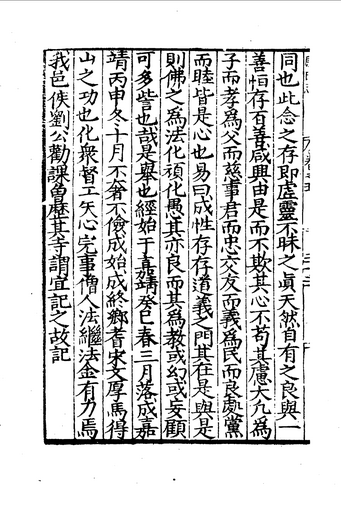 同也此念之存即虛靈不昧之真天然自有之良與一
善恒存百善咸興由是而不欺其心不苟其慮大凢為
子而孝為父而慈事君而忠交友而義為民而良處黨
而睦皆是心也易曰成性存存道義之門其在是與是
則佛之為法化頑化愚其亦良而其為教或幻或妄顧
可多訾也哉是舉也經始于嘉靖癸巳春三月落成嘉
靖丙申冬十月不奢不儉成始成終鄉耆宋文厚馬得
山之功也化衆督工矢心完事僧人法繼法金有力焉
我邑侯劉公勸課曽歷其寺謂宜記之故記